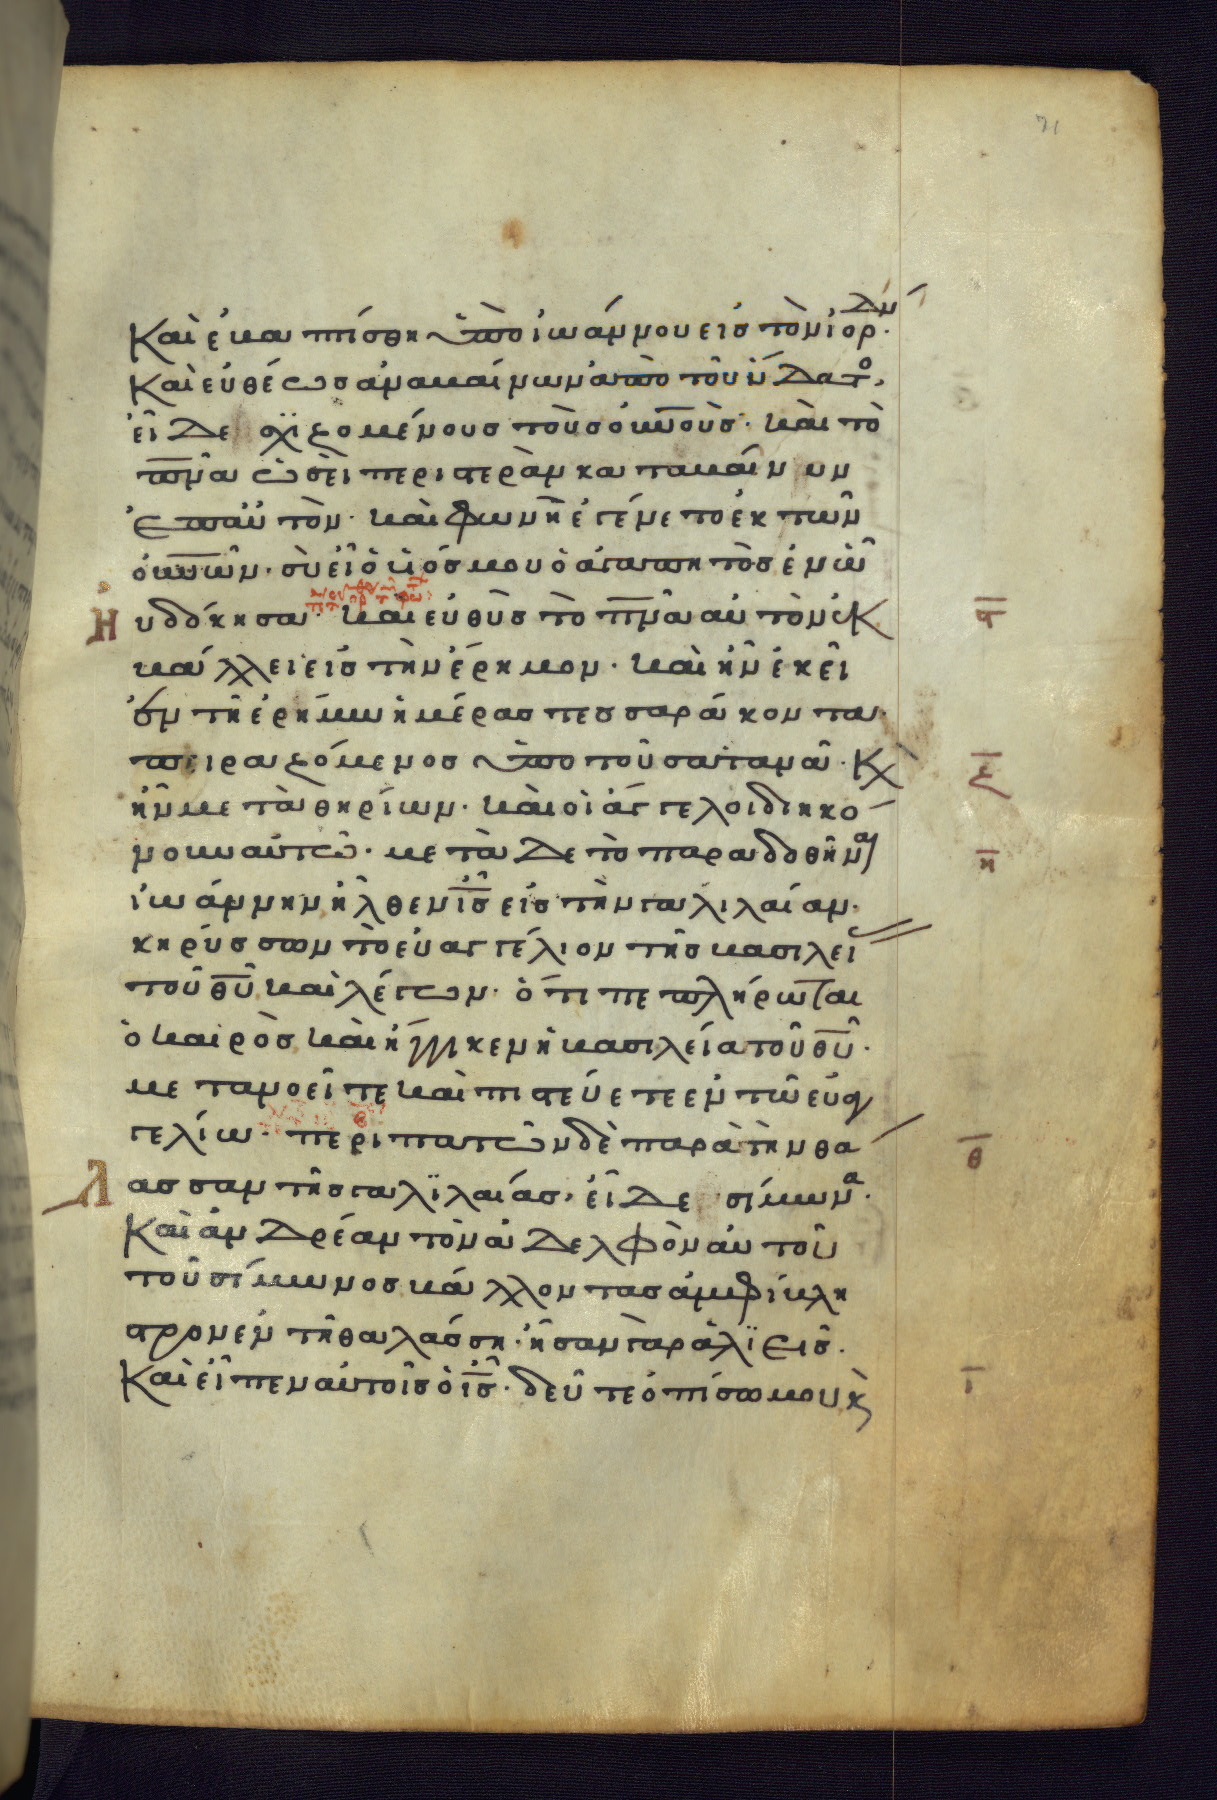 71
Καὶ ἐβαπτίσθη ὑπὸ ἰωάννου εἰς τὸν ἰορδν́.
Καὶ εὐθέως ἀναβαίνων ἀπὸ τοῦ ὕδατο,
εἶδε σχιζομένους τοὺς οὐνοὺς· καὶ τὸ
πνᾶ ὡσεὶ περιστερὰν καταβαῖνον
ἐπαὐτὸν· καὶ φωνὴ ἐγένετο ἐκ τῶν
οὐνῶν· σὺ εἶ ὁ ὑιός μου ὁ ἀγαπητὸς ἐν ὧ
ηὐδόκησα· καὶ εὐθὺς τὸ πνᾶ αὐτὸν ἐκ
Ϛ
βάλλει εἰς τὴν ἔρημον· καὶ ἦν ἐκεῖ
ἐν τῆ ἐρήμω ἡμέρας τεσσαράκοντα·
πειραζόμενος ὑπὸ τοῦ σατανᾶ· Κ
ζ
ἦν μετὰ θηρίων· καὶ οἱ ἄγγελοι διηκό
νουν αὐτῶ· μετὰ δε τὸ παραδοθῆνα
η
ἰωάννην ἦλθεν ἰς εἰς τὴν γαλιλαίαν·
κηρύσσων τὸ εὐαγγέλιον τῆς βασιλεί
τοῦ θυ καὶ λέγων· ὅτι πεπλήρωται
ὁ καιρὸς καὶ ἤγγικεν ἡ βασιλεία τοῦ θυ·
μετανοεῖτε καὶ πιστεύετε ἐν τῶ εὐαγ
γελίω· περιπατῶν δὲ παρὰ τὴν θα
θ
λασσαν τῆς γαλϊλαίας, εἶδε σίμωνα·
Καὶ ἀνδρέαν τὸν ἀδελφὸν αὐτοῦ
τοῦ σίμωνος βάλλοντας ἀμφίβλη
στρον ἐν τῆ θαλάσση· ἦσαν γὰρ ἁλϊεις·
Καὶ εἶπεν αὐτοῖς ὁ ἰς· δεῦτε ὀπίσω μου κ
ι